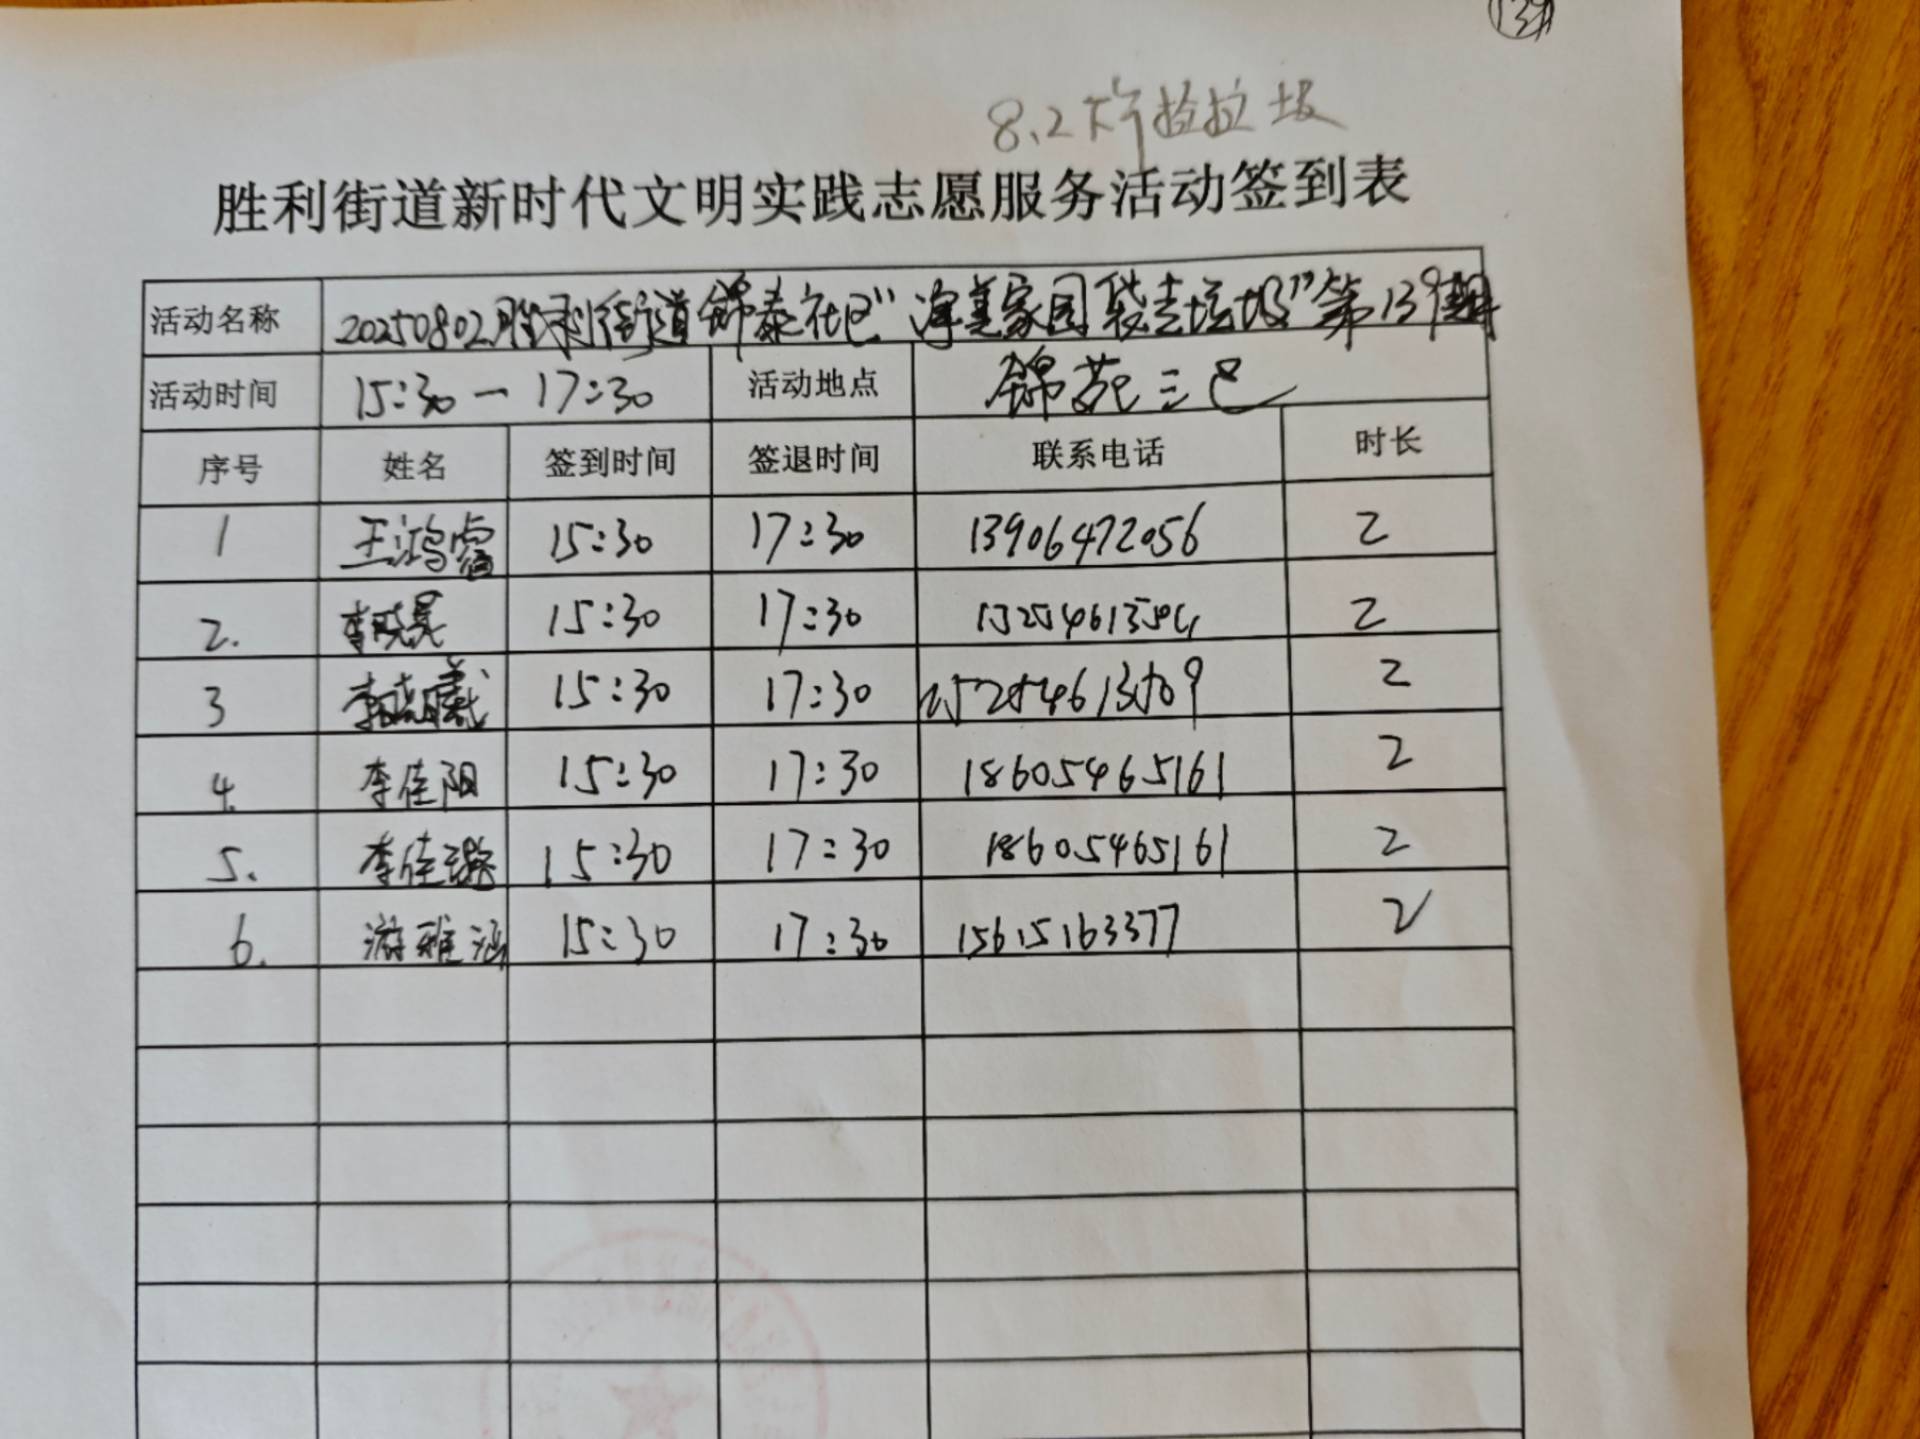 139
8.2下午捡垃圾
胜利街道新时代文明实践志愿服务活动签到表
活动名称 20250802胜利街道锦泰社区“净美家园 袋走垃圾”第139期
活动时间 15:30-17:30 活动地点 锦苑三区
序号 姓名 签到时间 签退时间 联系电话 时长
1 王鸿睿 15:30 17:30 13906472056 2
2. 李晓昊 15:30 17:30 2
3 李晓曦 15:30 17:30 15254613509 2
4. 李佳阳 15:30 17:30 18605465161 2
5. 李佳璐 15:30 17:30 18605465161 2
6. 游雅涵 15:30 17:30 15615163377 2